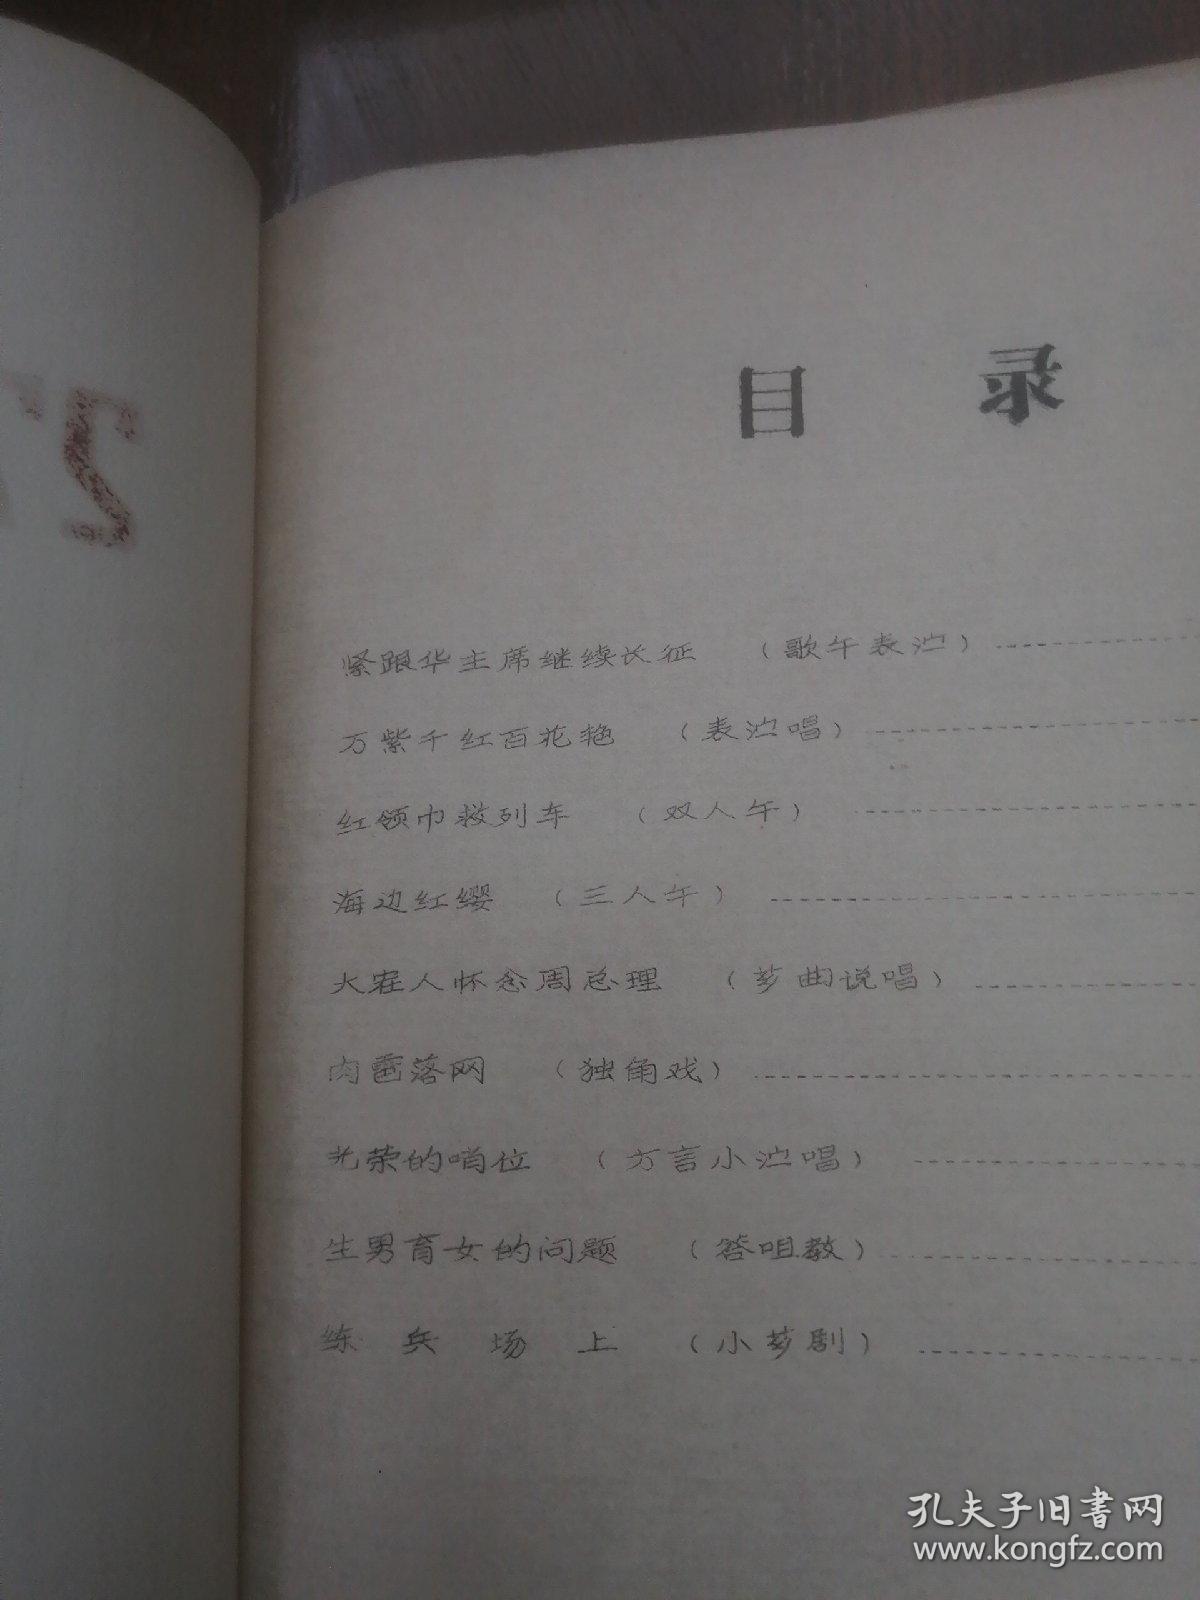 目录
紧跟华主席继续长征 （歌午表沪）
万紫千红百花艳 （表沪唱）
红领巾救列车 （双人午）
海边红缨 （三人午）
大寨人怀念周总理 （芗曲说唱）
落网 （独角戏）
光荣的哨位 （方言小沪唱）
生男育女的问题 （答咀教）
练兵场上 （小芗剧）
孔夫子旧书网
www.kongfz.com